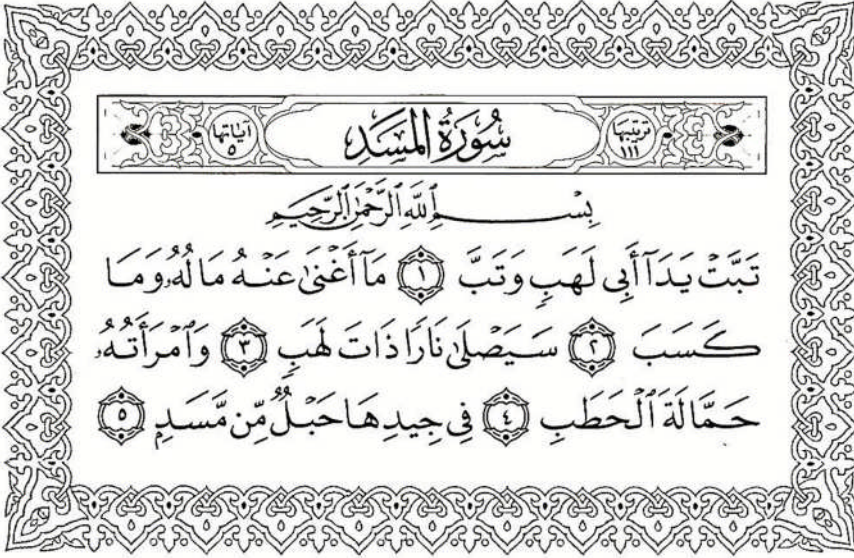 ترتيبها ١١١
سُورَةُ المَسَدِ
آياتها ٥
بِسْمِ ٱللَّهِ ٱلرَّحْمَٰنِ ٱلرَّحِيمِ
تَبَّتْ يَدَآ أَبِى لَهَبٍ وَتَبَّ ١ مَآ أَغْنَىٰ عَنْهُ مَالُهُۥ وَمَا
كَسَبَ ٢ سَيَصْلَىٰ نَارًا ذَاتَ لَهَبٍ ٣ وَٱمْرَأَتُهُۥ
حَمَّالَةَ ٱلْحَطَبِ ٤ فِى جِيدِهَا حَبْلٌ مِّن مَّسَدٍ ٥